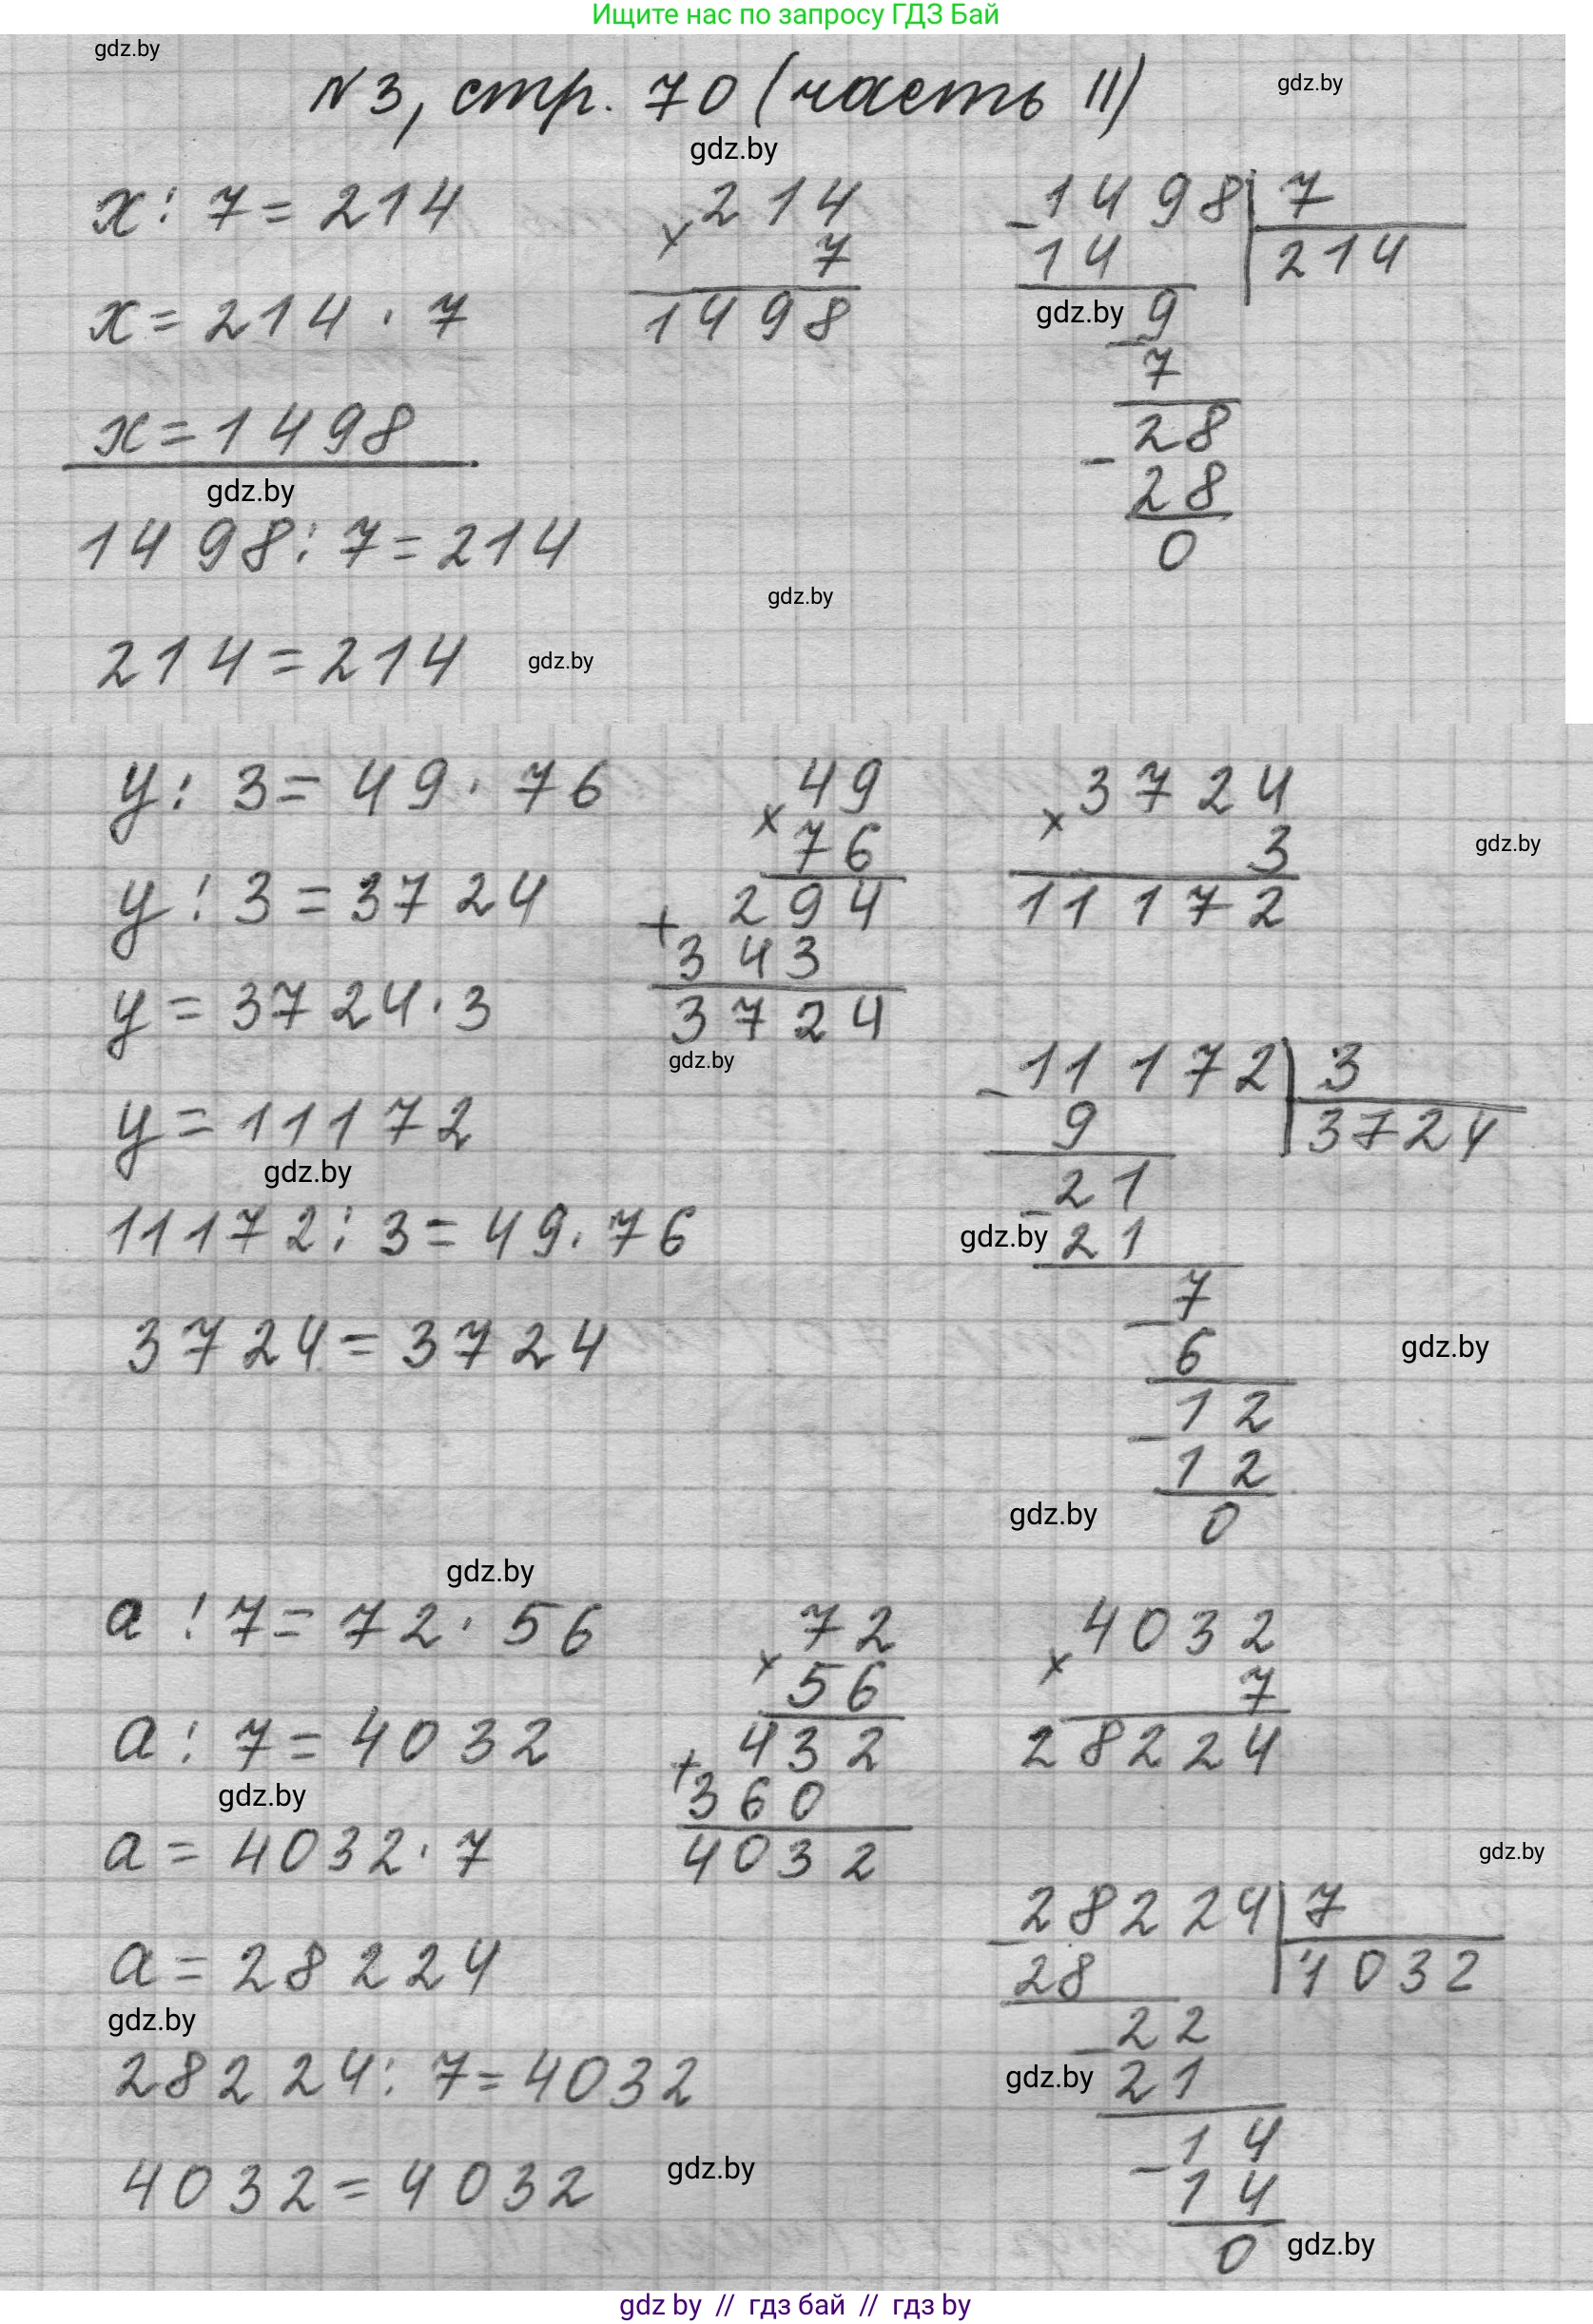 Ищите нас по запросу ГДЗ Бай
gdz.by
N3, стр. 70 (часть II)
gdz.by
gdz.by
x : 7 = 214
x = 214 · 7
x = 1498
gdz.by
1498 : 7 = 214
214 = 214
gdz.by
× 214
7
1498
gdz.by
- 1498 | 7
14 | 214
gdz.by
- 9
7
- 28
28
0
y : 3 = 49 · 76
y : 3 = 3724
y = 3724 · 3
y = 11172
gdz.by
11172 : 3 = 49 · 76
3724 = 3724
49
× 76
+ 294
343
3724
gdz.by
× 3724
3
11172
gdz.by
- 11172 | 3
9 | 3724
- 21
gdz.by
21
- 7
6
gdz.by
- 12
12
gdz.by
0
gdz.by
a : 7 = 72 · 56
a : 7 = 4032
gdz.by
a = 4032 · 7
a = 28224
gdz.by
28224 : 7 = 4032
4032 = 4032
gdz.by
× 72
56
+ 432
360
4032
× 4032
7
28224
gdz.by
- 28224 | 7
28 | 4032
- 22
gdz.by
21
- 14
14
0
gdz.by
gdz by // гдз бай // гдз by